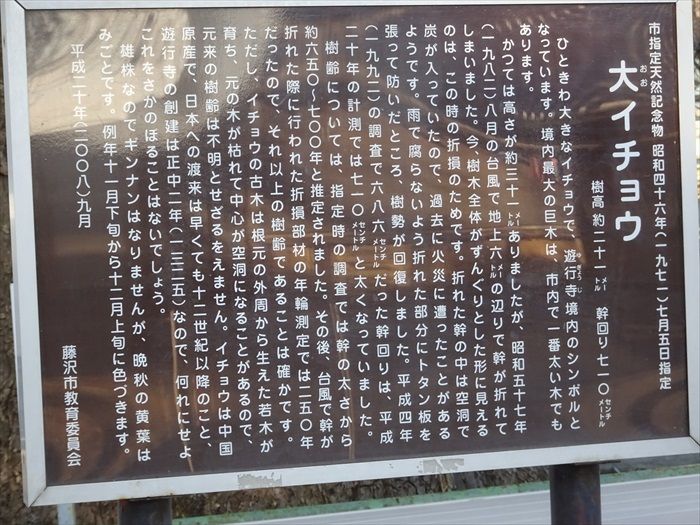 市指定天然記念物 昭和四十六年(一九七一)七月五日指定
大イチョウ
おお
樹高約二十一メートル 幹回り七一〇センチメートル
ひときわ大きなイチョウで、遊行寺境内のシンボルと
ゆぎょうじ
なっています。境内最大の巨木は、市内で一番太い木でも
あります。
かつては高さが約三十一メートルありましたが、昭和五十七年
(一九八二)八月の台風で地上六メートルの辺りで幹が折れて
しまいました。今、樹木全体がずんぐりとした形に見える
のは、この時の折損のためです。折れた幹の中は空洞で
炭が入っていたので、過去に火災に遭ったことがある
ようです。雨で腐らないよう折れた部分にトタン板を
張って防いだところ、樹勢が回復しました。平成四年
(一九九二)の調査で六八六センチメートルだった幹回りは、平成
二十年の計測では七一〇センチメートルと太くなっていました。
樹齢については、指定時の調査では幹の太さから
約六五〇〜七〇〇年と推定されました。その後、台風で幹が
折れた際に行われた折損部材の年輪測定では二五〇年
だったので、それ以上の樹齢であることは確かです。
ただし、イチョウの古木は根元の外周から生えた若木が
育ち、元の木が枯れて中心が空洞になることがあるので、
元来の樹齢は不明とせざるをえません。イチョウは中国
原産で、日本への渡来は早くても十二世紀以降のこと、
遊行寺の創建は正中二年(一三二五)なので、何れにせよ
これをさかのぼることはないでしょう。
雄株なのでギンナンはなりませんが、晩秋の黄葉は
みごとです。例年十一月下旬から十二月上旬に色づきます。
平成二十年(二〇〇八)九月
藤沢市教育委員会